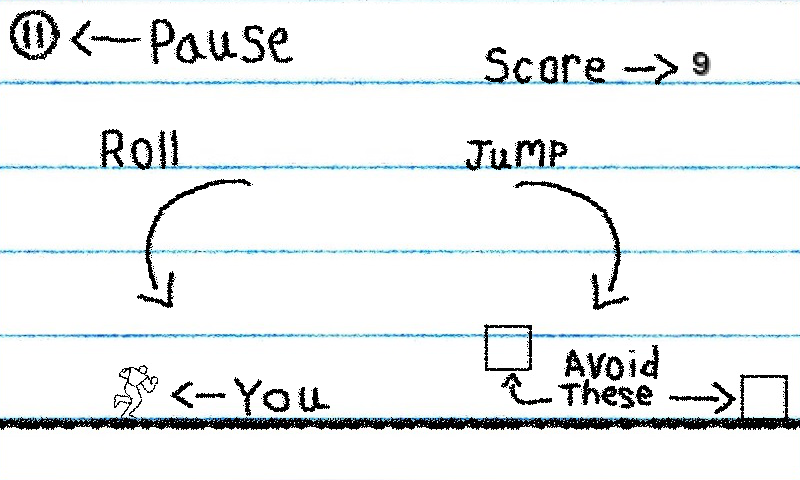 Pause
Score → 9
Roll
Jump
You
Avoid
These